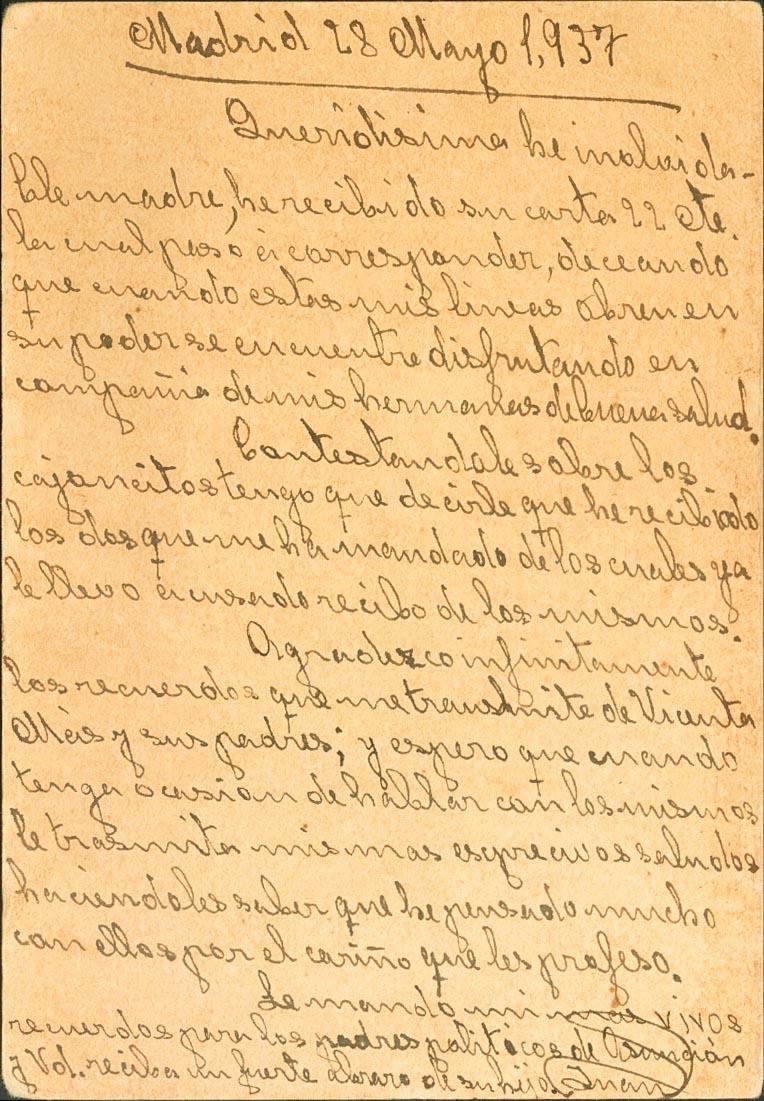 Madrid 28 Mayo 1,937
Queridisima he inolvida-
ble madre, he recibido su carta 22 cte.
la cual paso á corresponder, deceando
que cuando estas mis lineas obren en
su poder se encuentre disfrutando en
compañia de mis hermanas de buena salud.
Contestandole sobre los
cajoncitos tengo que decirle que he recibido
los dos que me ha mandado de los cuales ya
le llevo acusado recibo de los mismos.
Agradezco infinitamente
los recuerdos que me transmite de Vicenta
Más y sus padres; y espero que cuando
tenga ocasion de hablar con los mismos
le trasmita mis mas esprecivos saludos
haciendoles saber que he pensado mucho
con ellos por el cariño que les profeso.
Le mando mi mas vivos
recuerdos para los padres politicos de Asunción
y Vd. reciba un fuerte abrazo de su hijo Juan